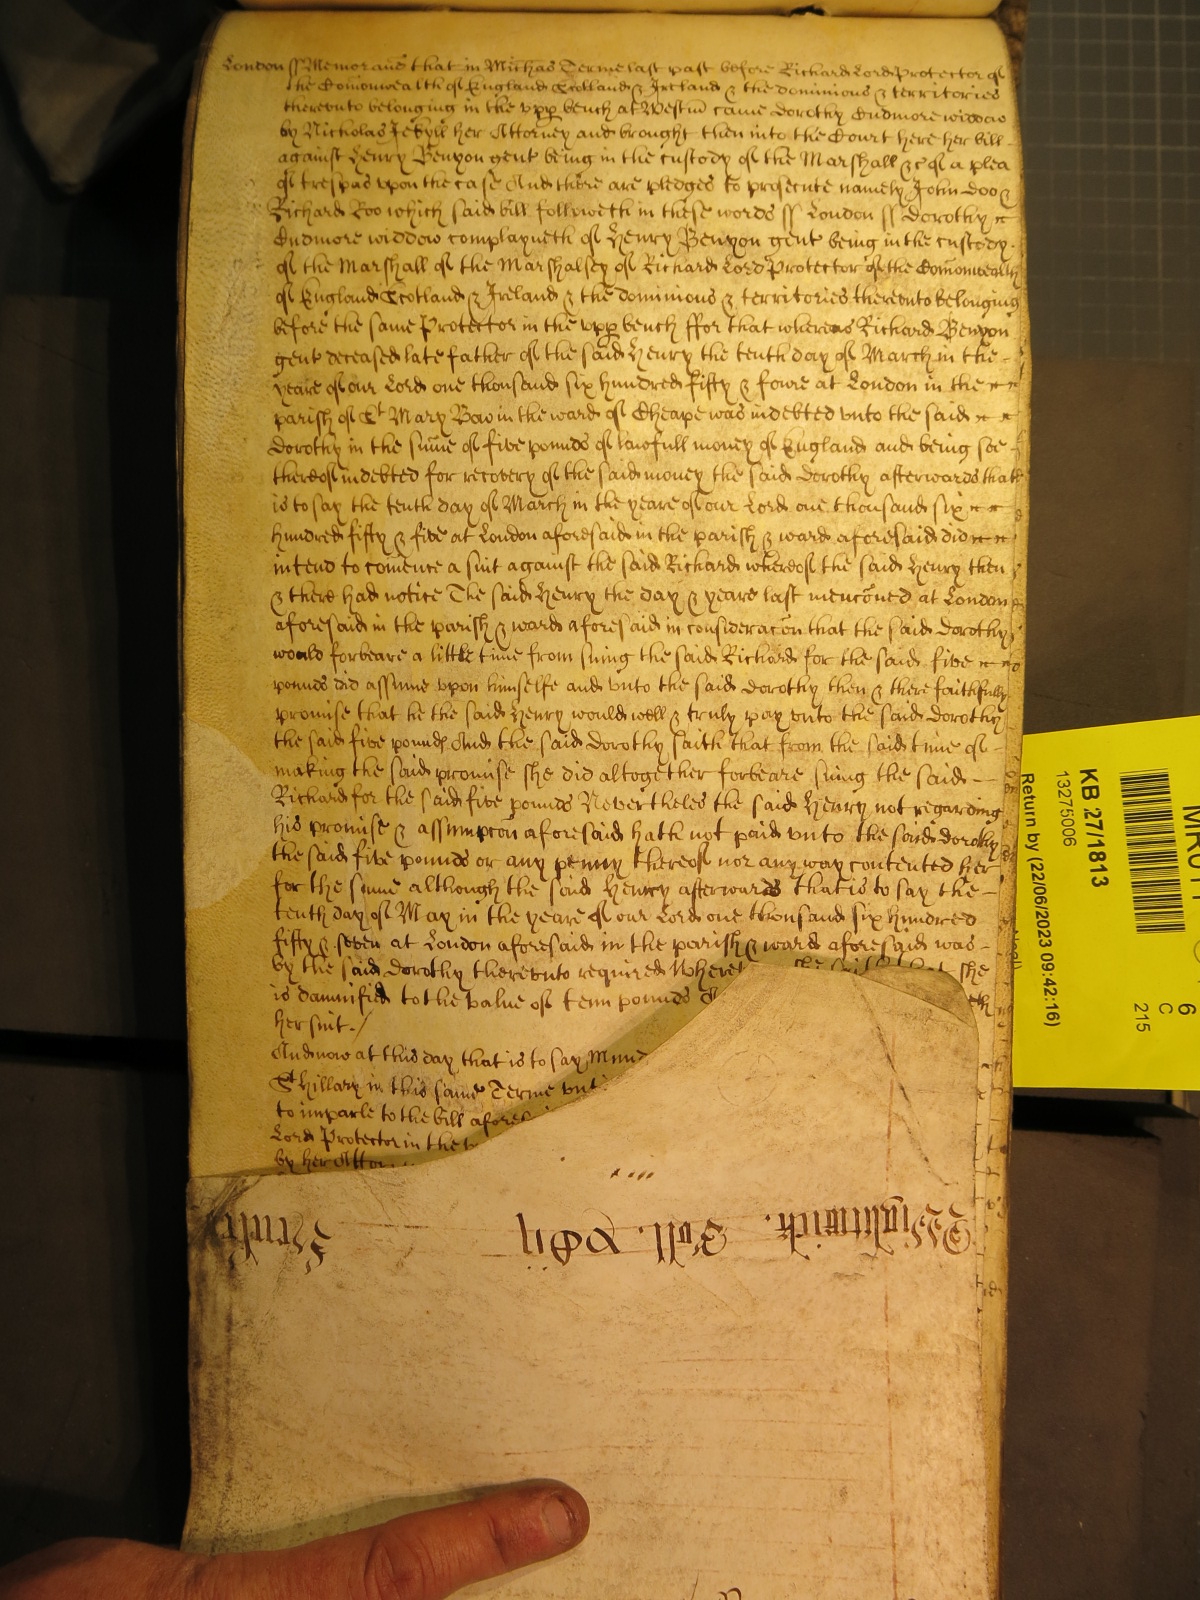 London ss Memorand that in Michas Terme last past before Richard Lord Protector of
the Comonwealth of England Scotland & Ireland & the dominions & territories
therevnto belonging in the vpp bench at Westm came Dorothy Cudmore widdow
by Nicholas Jekyll her Attorney and brought then into the Court here her bill
against Henry Benyon gent being in the custody of the Marshall &c of a plea
of trespas vpon the case And there are pledges to prosecute namely John Doo &
Richard Roo which said bill followeth in these words ss London ss Dorothy
Cudmore widdow complayneth of Henry Benyon gent being in the custody
of the Marshall of the Marshalsey of Richard Lord Protector of the Comonwealth
of England Scotland & Ireland & the dominions & territories therevnto belonging
before the same Protector in the vpp bench ffor that whereas Richard Benyon
gent deceased late father of the said Henry the tenth day of March in the
yeare of our Lord one thousand six hundred fifty & fowre at London in the
parish of St Mary Bow in the ward of Cheape was indebted vnto the said
Dorothy in the sume of five pounds of lawfull money of England and being soe
thereof indebted for recovery of the said money the said Dorothy afterwards that
is to say the tenth day of March in the yeare of our Lord one thousand six
hundred fifty & five at London aforesaid in the parish & ward aforesaid did
intend to comence a suit against the said Richard whereof the said Henry then
& there had notice The said Henry the day & yeare last menconed at London
aforesaid in the parish & ward aforesaid in consideracon that the said Dorothy
would forbeare a little time from suing the said Richard for the said five
pounds did assume vpon himselfe and vnto the said Dorothy then & there faithfully
promise that he the said Henry would well & truly pay vnto the said Dorothy
the said five pounds And the said Dorothy saith that from the said time of
making the said promise she did altogether forbeare suing the said
Richard for the said five pounds Nevertheles the said Henry not regarding
his promise & assumpcon aforesaid hath not paid vnto the said Dorothy
the said five pounds or any penny thereof nor any way contented her
for the same although the said Henry afterwards that is to say the
tenth day of May in the yeare of our Lord one thousand six hundred
fifty & seven at London aforesaid in the parish & ward aforesaid was
by the said Dorothy therevnto required she
is damnified to the value of tenn pounds
her suit
And now at this day that is to say
St Hillary in this same Terme
to imparle to the bill
Lord Protector in the
by her
Wightwick. Roll.
KB 27/1813
13275006
Return by (22/06/2023 09:42:16)
6
C
215